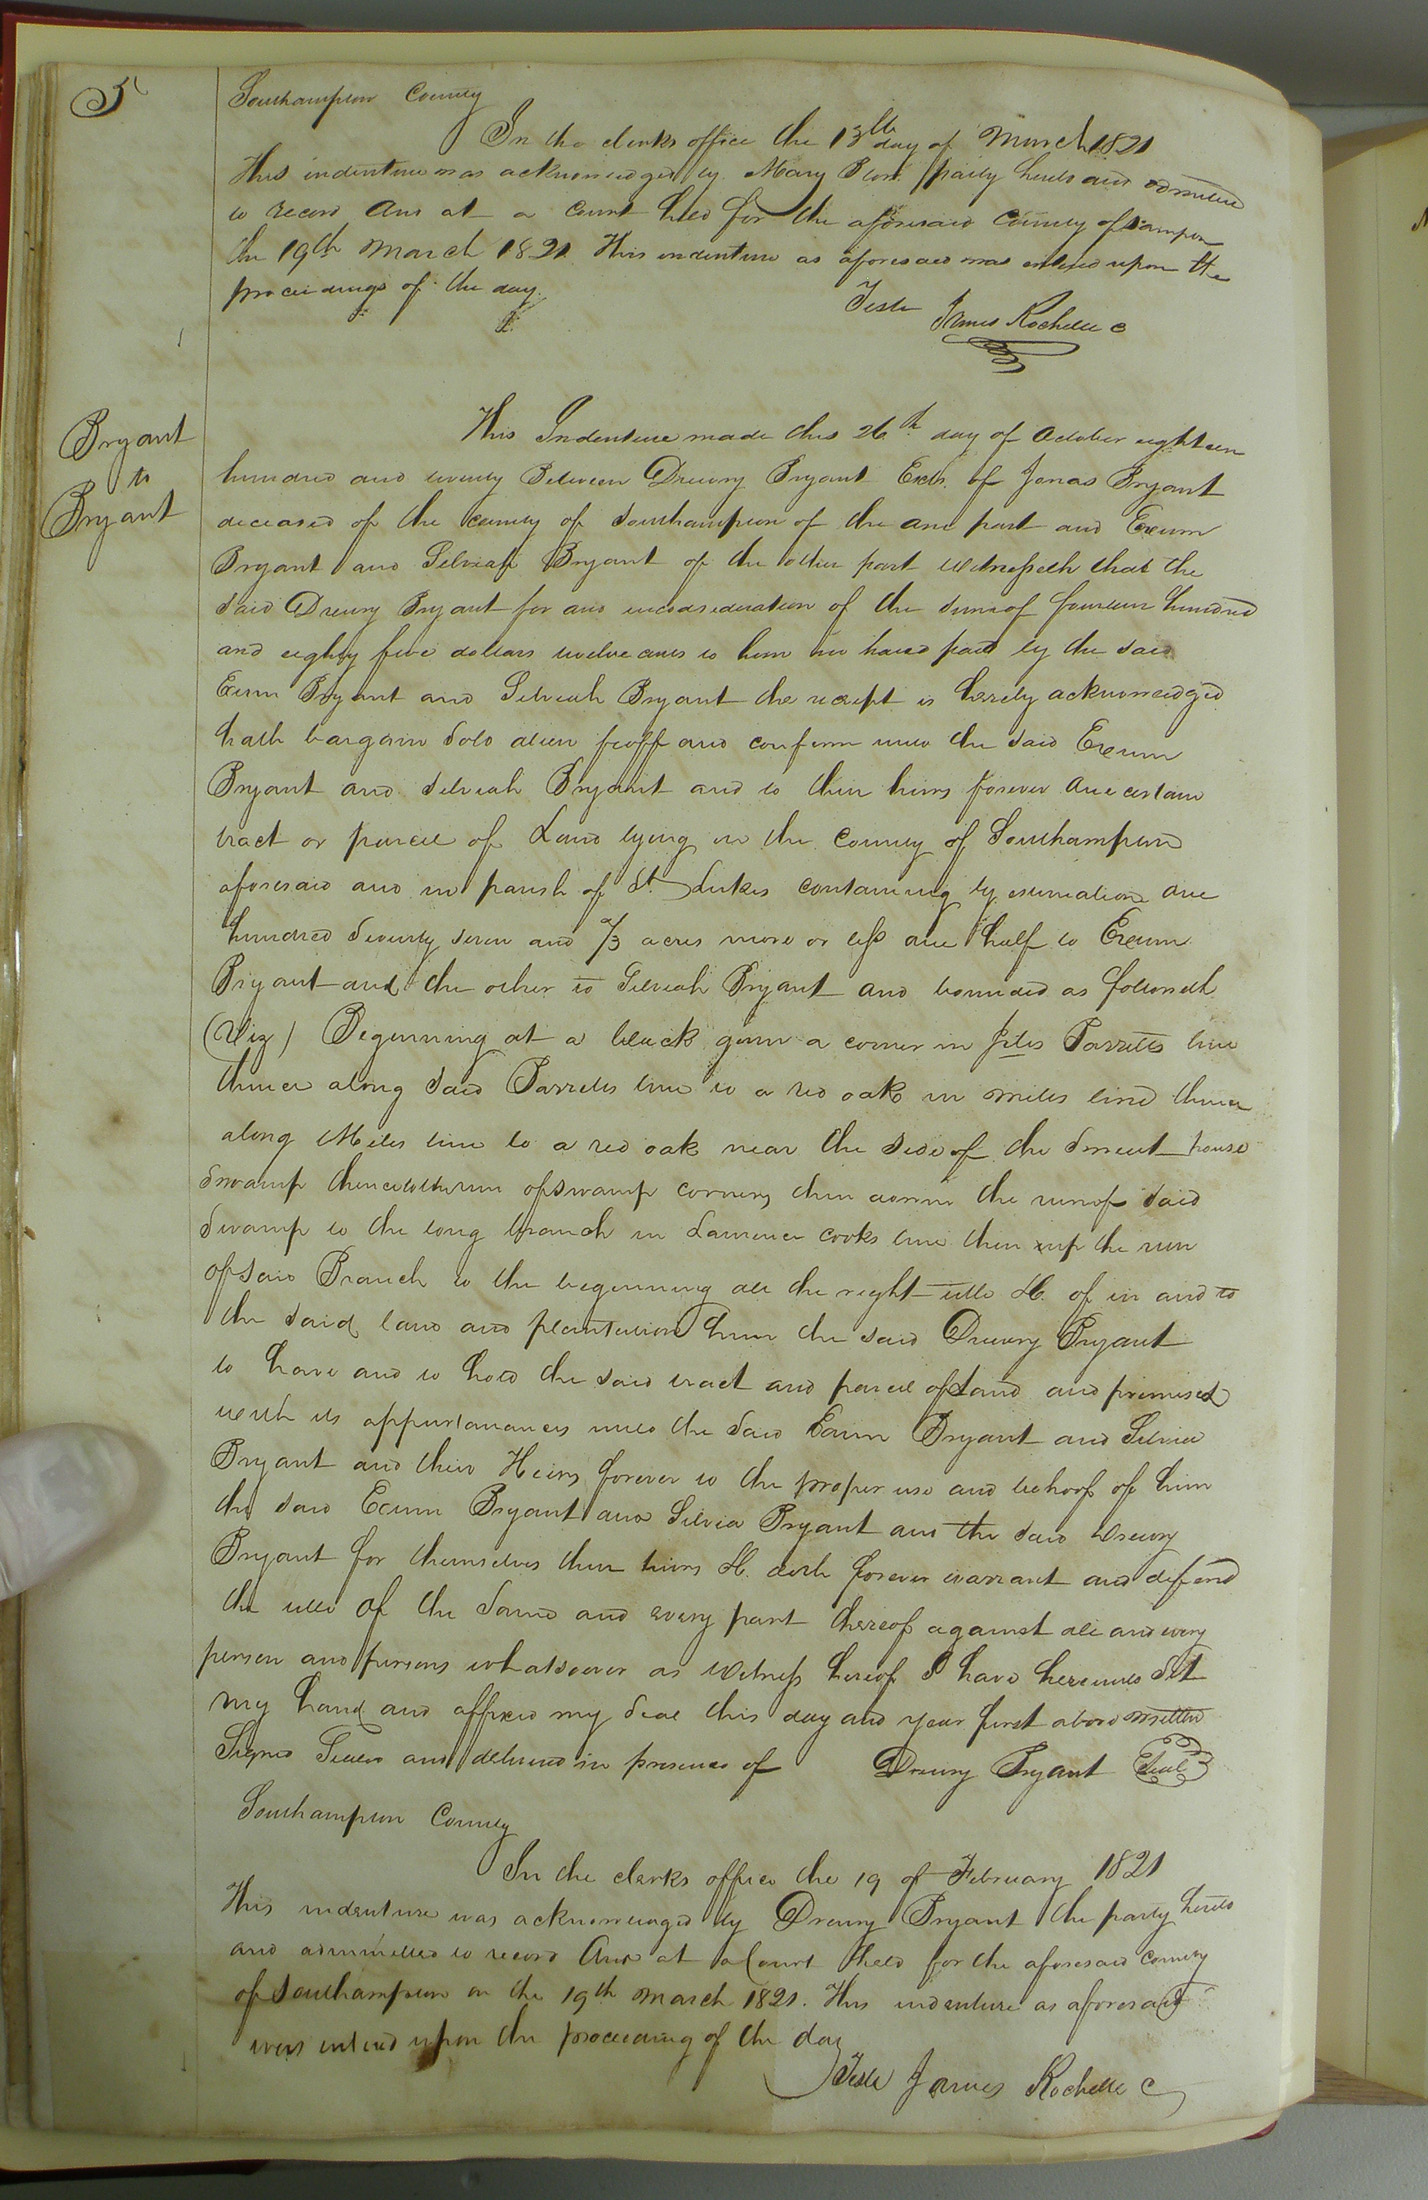 5
Southampton County
In the clerks office the 13th day of March 1821
This indenture was acknowledged by Mary party hereto and admitted
to record And at a Court held for the aforesaid County of
the 19th March 1821 This indenture as aforesaid was entered upon the
proceedings of the day.
Teste James Rochelle C
Bryant
to
Bryant
This Indenture made this 26th day of October eighteen
hundred and twenty Between Drewry Bryant Exctr. of Jonas Bryant
deceased of the county of Southampton of the one part and Exum
Bryant and Silviah Bryant of the other part witnesseth that the
said Drewry Bryant for and inconsideration of the sum of fourteen hundred
and eighty five dollars twelve cents to him in hand paid by the said
Exum Bryant and Silviah Bryant the receipt is hereby acknowledged
hath bargain Sold alien feoff and confirm unto the said Exum
Bryant and Silviah Bryant and to their heirs forever one certain
tract or parcel of Land lying in the County of Southampton
aforesaid and in parish of St. Lukes containing by esimation one
hundred Seventy seven and 2/3 acres more or less one half to Exum
Bryant and the other to Silviah Bryant and bounded as followeth
(Viz) Beginning at a black gum a corner in Jiles line
thence along Said line to a red oak in Miles line thence
along Miles line to a red oak near the Side of the house
Swamp thence to the run of swamp corners then down the run of Said
Swamp to the long branch in Lawrence Cooks line then up the run
of Said Branch to the beginning all the right title &c. of in and to
the said land and plantation him the said Drewry Bryant
to have and to hold the said tract and parcel of Land and premised
with its appurtanances unto the said Exum Bryant and Silvia
Bryant and their Heirs forever to the proper use and behoof of him
the said Exum Bryant and Silvia Bryant and the said Drewry
Bryant for themselves their heirs &c. doth forever warrant and defend
the title of the Same and every part thereof against all and every
person and persons whatsoever as Witness hereof I have hereunto Set
my hand and affixed my Seal this day and year first above written
Signed Sealed and delivered in presence of Drewry Bryant Seal
Southampton County
In the clerks office the 19 of February 1821
This indenture was acknowledged by Drewry Bryant the party hereto
and admitted to record And at a Court held for the aforesaid County
of Southampton on the 19th March 1821. This indenture as aforesaid
was entered upon the proceeding of the day
Teste James Rochelle C